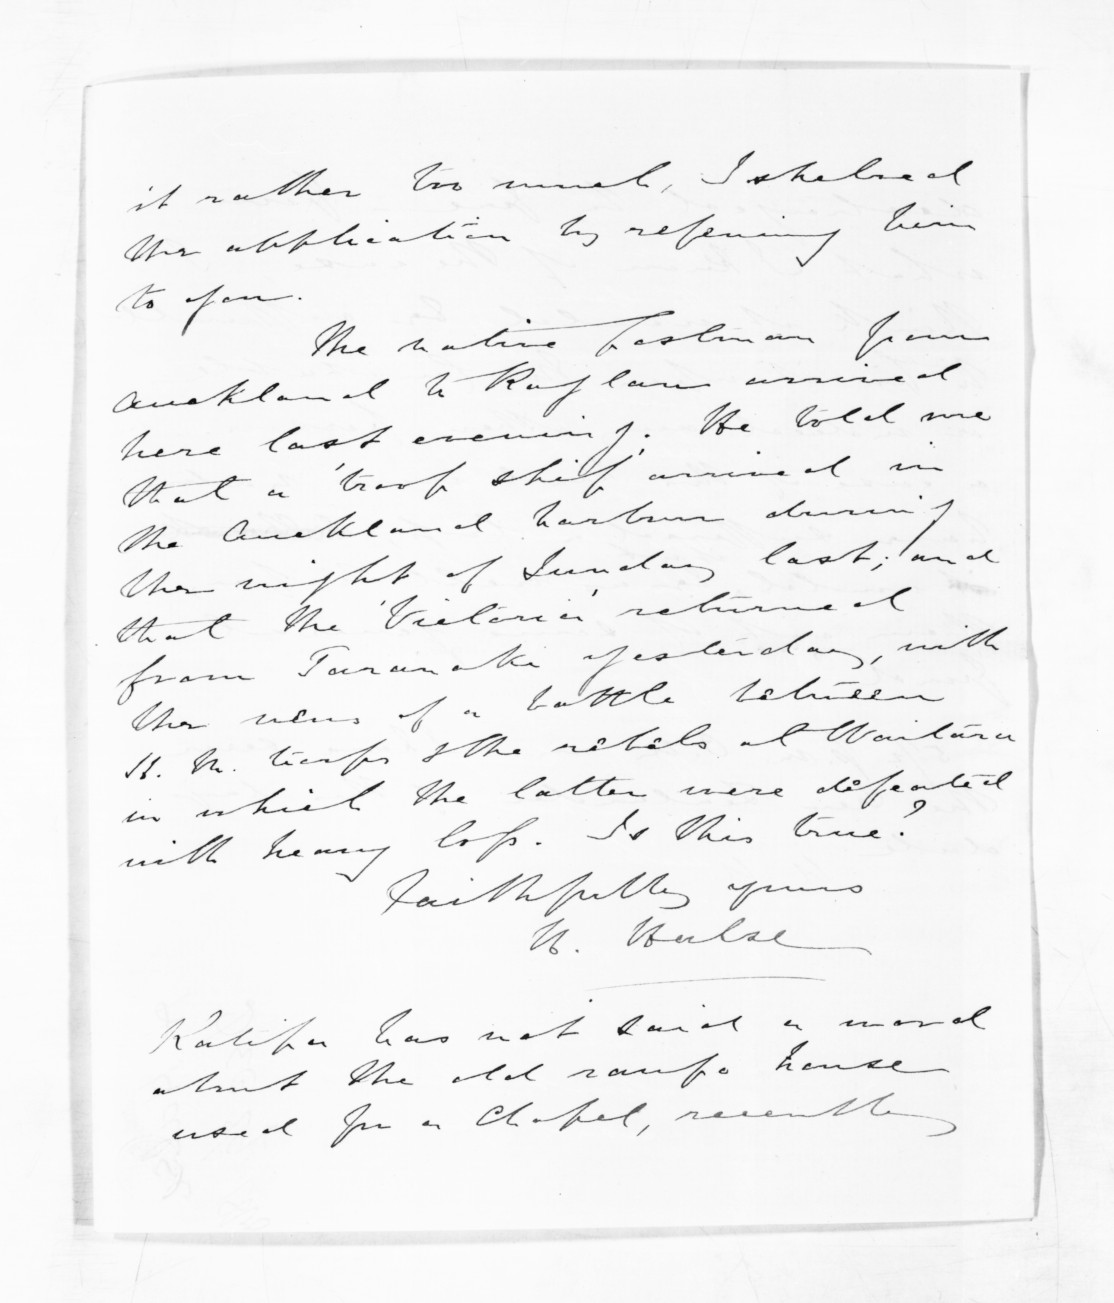 it rather too much, I shelved
the application by referring him
to you.
The native postman from
Auckland to Raglan arrived
here last evening. He told me
that a 'troop ship' arrived in
the Auckland harbour during
the night of Sunday last; and
that the 'Victoria' returned
from Taranaki yesterday, with
the news of a battle between
H. M. troops & the rebels at Waitara
in which the latter were defeated
with heavy loss. Is this true?
Faithfully yours
H. Halse
Katipa has not said a word
about the old raupo house
used for a Chapel, recently